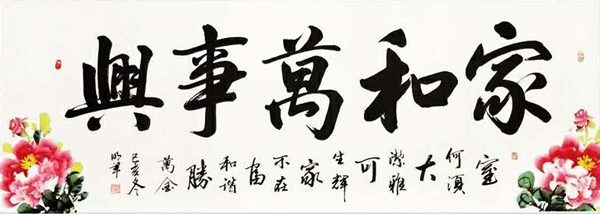 家和萬事興
室何須大潔雅可生輝家不在富和諧勝萬金
己亥冬